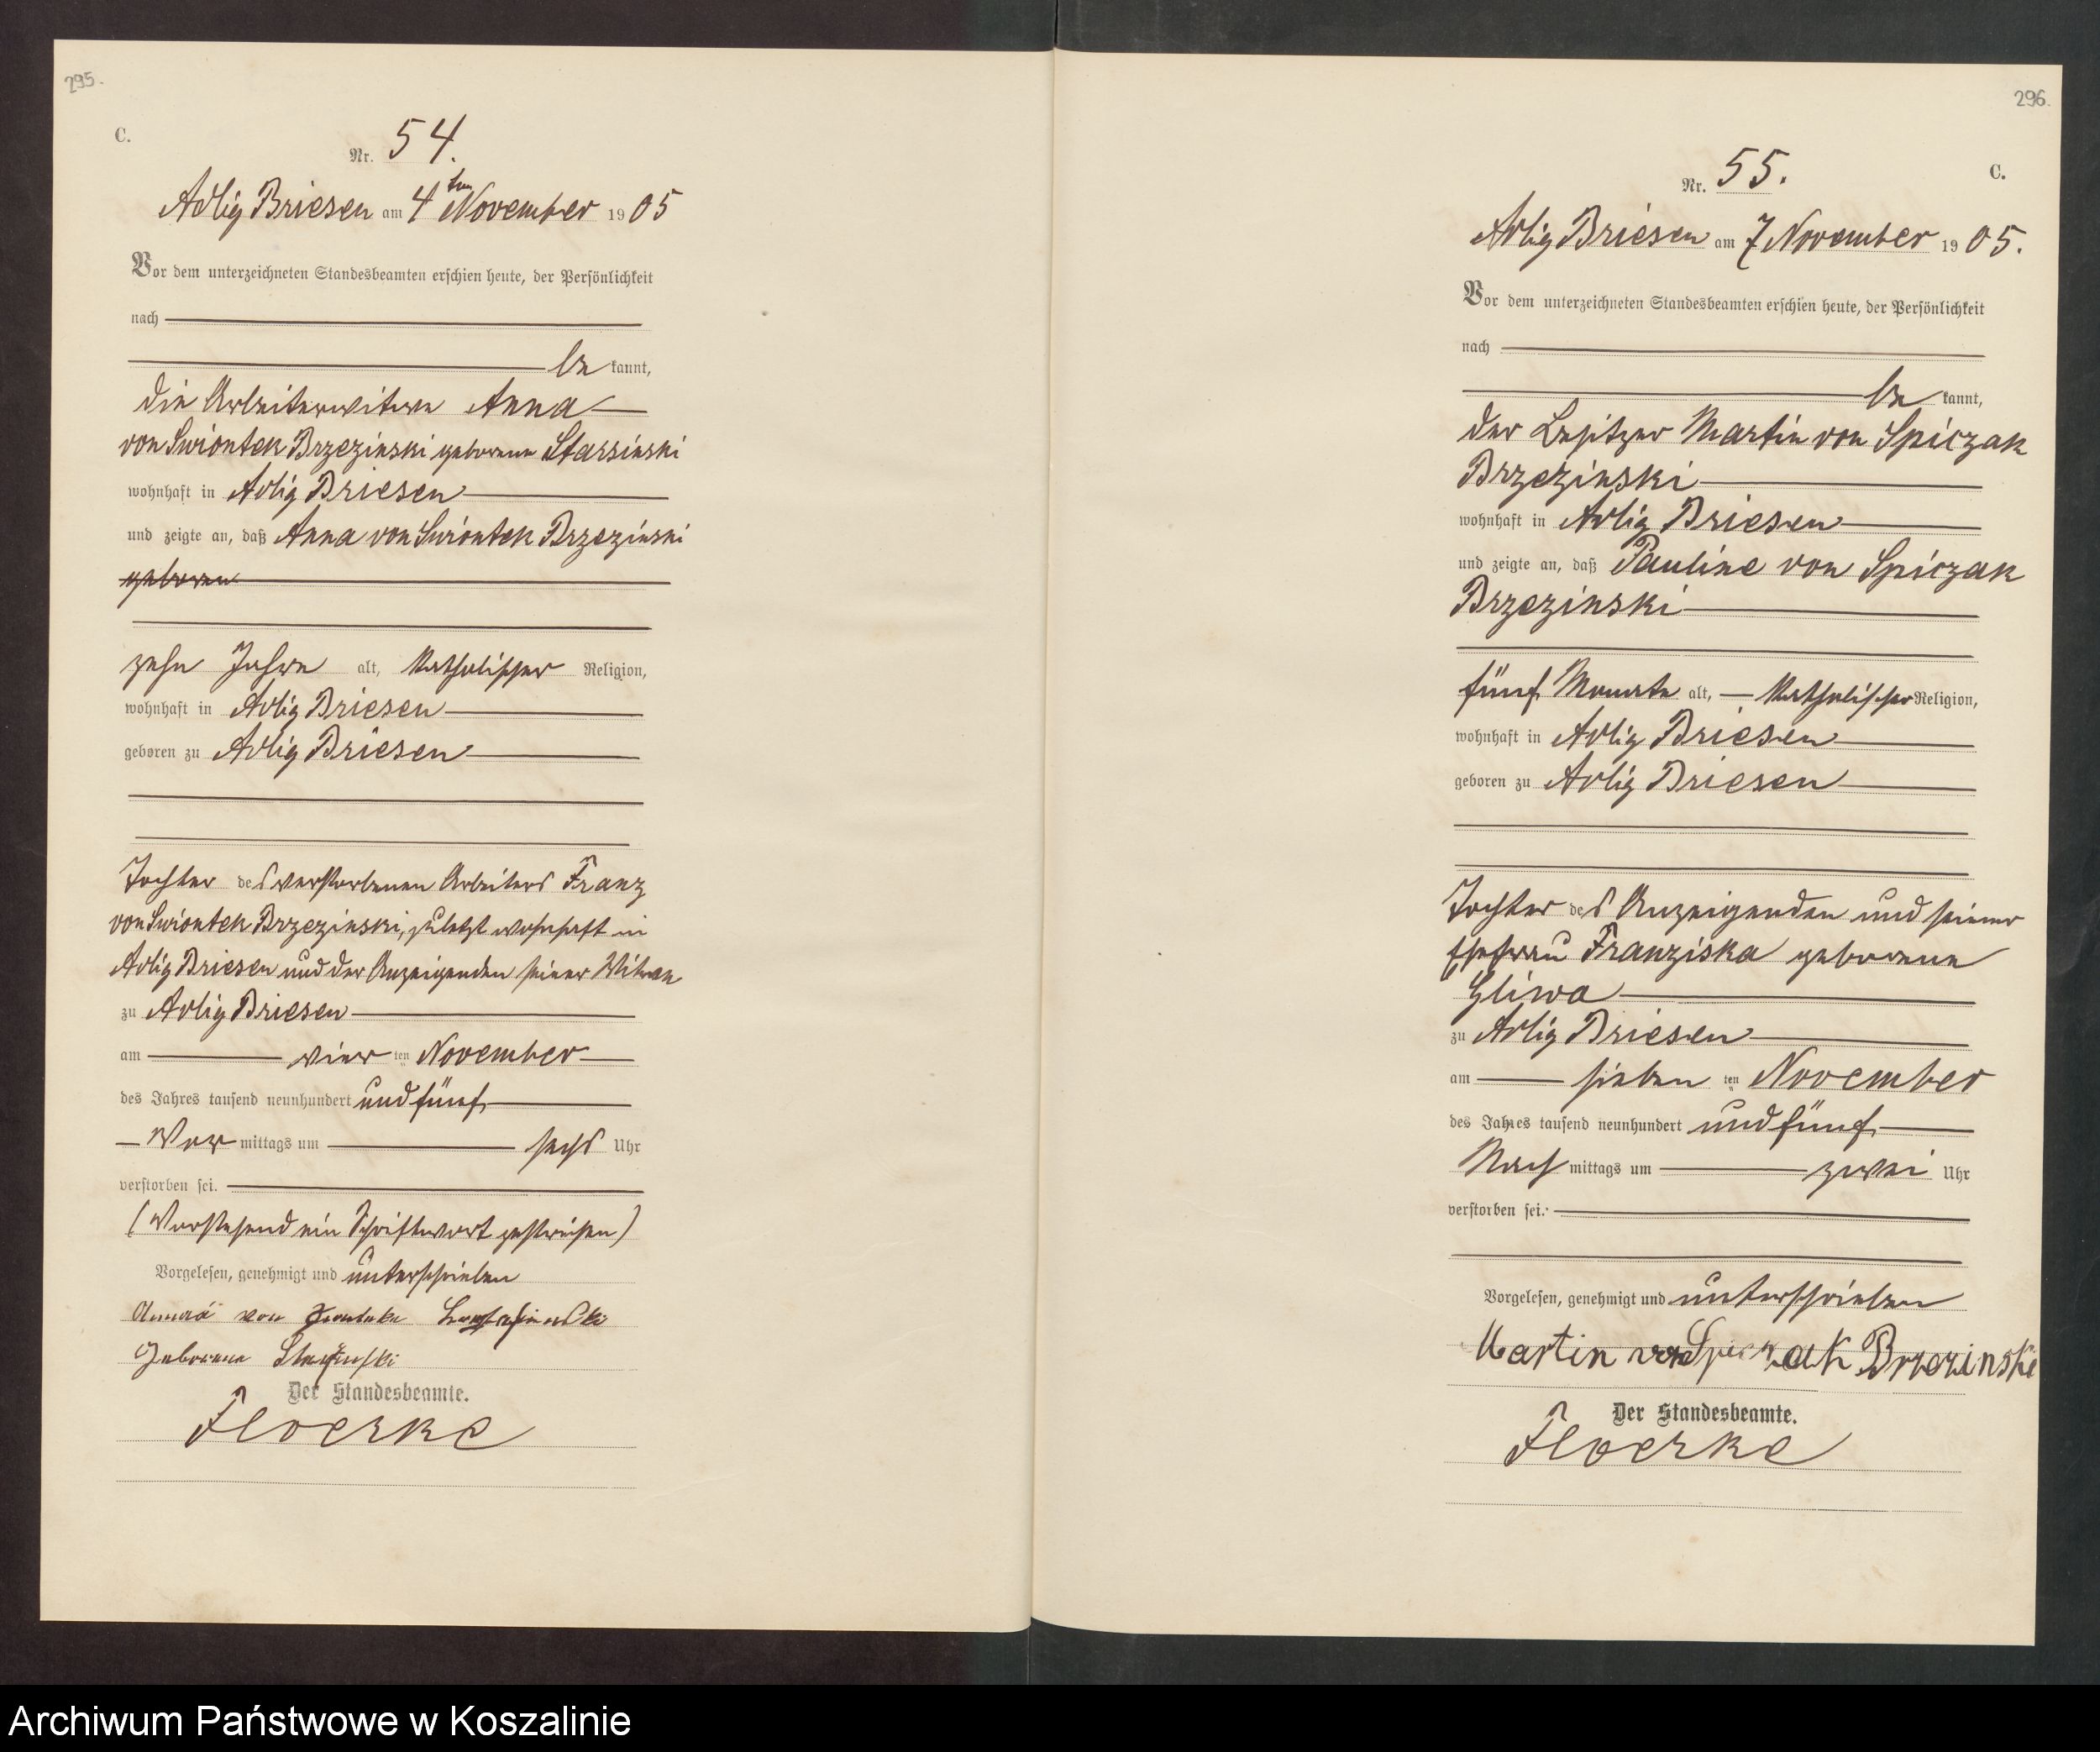 295.
C.
Nr. 54.
Adlig Briesen am 4ten November 1905
Vor dem unterzeichneten Standesbeamten erschien heute, der Persönlichkeit
nach
be kannt,
die Arbeiterwitwe Anna
von Swiontek Brzezinski geborene Stassinski
wohnhaft in Adlig Briesen
und zeigte an, daß Anna von Swiontek Brzezinski
geboren
zehn Jahre alt, katholischer Religion,
wohnhaft in Adlig Briesen
geboren zu Adlig Briesen
Tochter des verstorbenen Arbeiters Franz
von Swiontek Brzezinski, zuletzt wohnhaft in
Adlig Briesen und der Anzeigenden seiner Witwe
zu Adlig Briesen
am vier ten November
des Jahres tausend neunhundert und fünf
Vor mittags um sechs Uhr
verstorben sei.
(Vorstehend ein Schriftwort gestrichen)
Vorgelesen, genehmigt und unterschrieben
von
Geborene
Der Standesbeamte.
Floerke
296.
C.
Nr. 55.
Adlig Briesen am 7 November 1905.
Vor dem unterzeichneten Standesbeamten erschien heute, der Persönlichkeit
nach
be kannt,
der Besitzer Martin von Spiczak
Brzezinski
wohnhaft in Adlig Briesen
und zeigte an, daß Pauline von Spiczak
Brzezinski
fünf Monate alt, katholischer Religion,
wohnhaft in Adlig Briesen
geboren zu Adlig Briesen
Tochter des Anzeigenden und seiner
Ehefrau Franziska geborene
Gliwa
zu Adlig Briesen
am sieben ten November
des Jahres tausend neunhundert und fünf
Nach mittags um zwei Uhr
verstorben sei.
Vorgelesen, genehmigt und unterschrieben
Martin von Spiczak Brzezinski
Der Standesbeamte.
Floerke
Archiwum Państwowe w Koszalinie